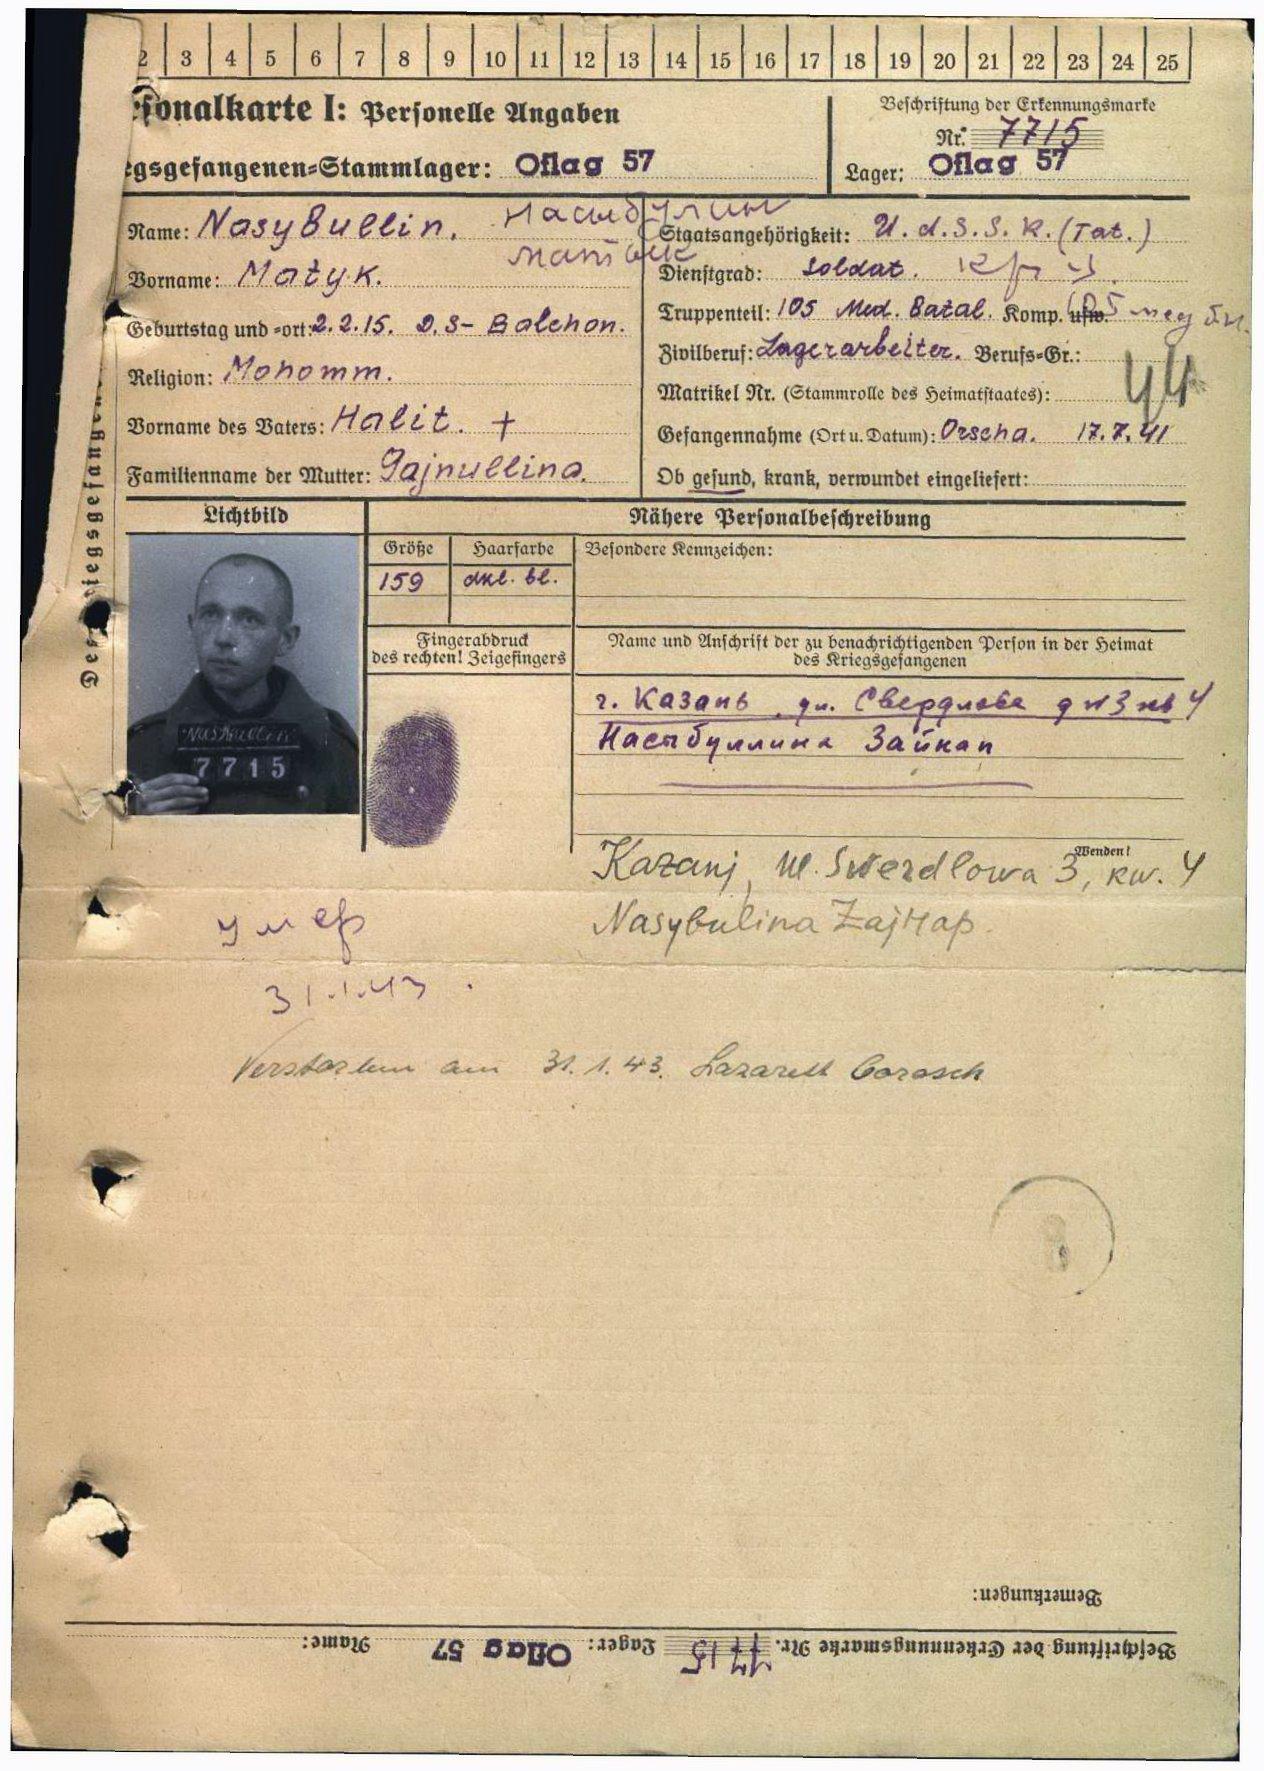 2 3 4 5 6 7 8 9 10 11 12 13 14 15 16 17 18 19 20 21 22 23 24 25
rsonalkarte I: Personelle Angaben
Beschriftung der Erkennungsmarke
Nr. 7715
egsgefangenen-Stammlager: Oflag 57
Lager: Oflag 57
Name: NasyBullin. Насыбулин
Матык
Vorname: Matyk.
Geburtstag und -ort: 2.2.15. D.S- Balchon.
Religion: Mohomm.
Vorname des Vaters: Halit. +
Familienname der Mutter: Gajnullina.
Staatsangehörigkeit: U.d.S.S.R. (Tat.)
Dienstgrad: Soldat.
Truppenteil: 105 Med. Batal. Komp. usw. 105 мед бн.
Zivilberuf: Lagerarbeiter. Berufs-Gr.:
44
Matrikel Nr. (Stammrolle des Heimatstaates):
Gefangennahme (Ort u. Datum): Orscha. 17.7.41
Ob gesund, krank, verwundet eingeliefert:
Lichtbild
Nähere Personalbeschreibung
Größe
159
Haarfarbe
dkl. bl.
Besondere Kennzeichen:
Fingerabdruck
des rechten! Zeigefingers
Name und Anschrift der zu benachrichtigenden Person in der Heimat
des Kriegsgefangenen
г. Казань, ул. Свердлова д №3 кв 4
Насыбуллина Зайнап
Nasybullin
7715
Wenden!
Kazanj, ul. Swerdlowa 3, kw. 4
Nasybulina Zajnap.
умер
31.1.43.
Verstorben am 31.1.43. Lazarett
Bemerkungen:
Beschriftung der Erkennungsmarke Nr. 7715 Lager: Oflag 57 Name: